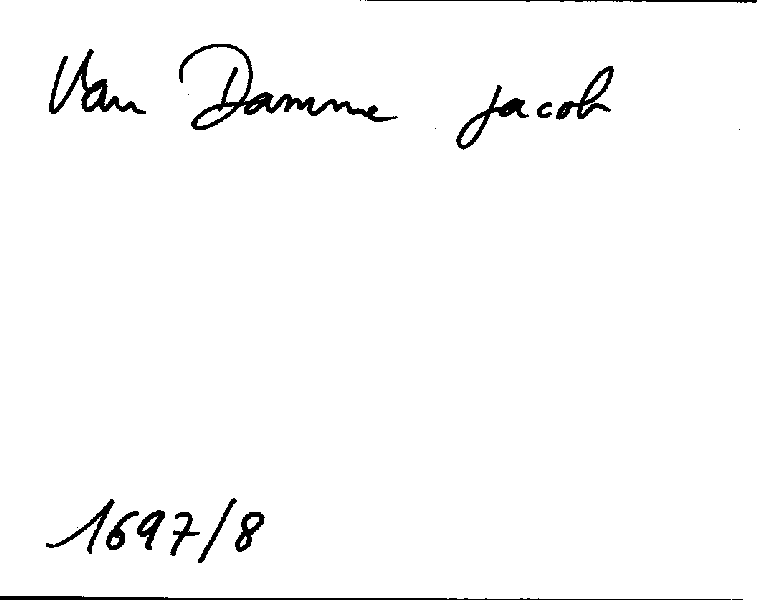 Van Damme Jacob
1697/8